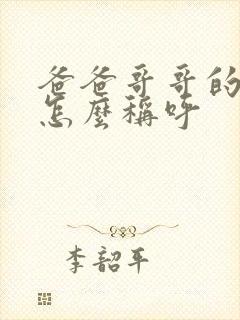 爸爸哥哥的
怎麼稱呼
李韶平